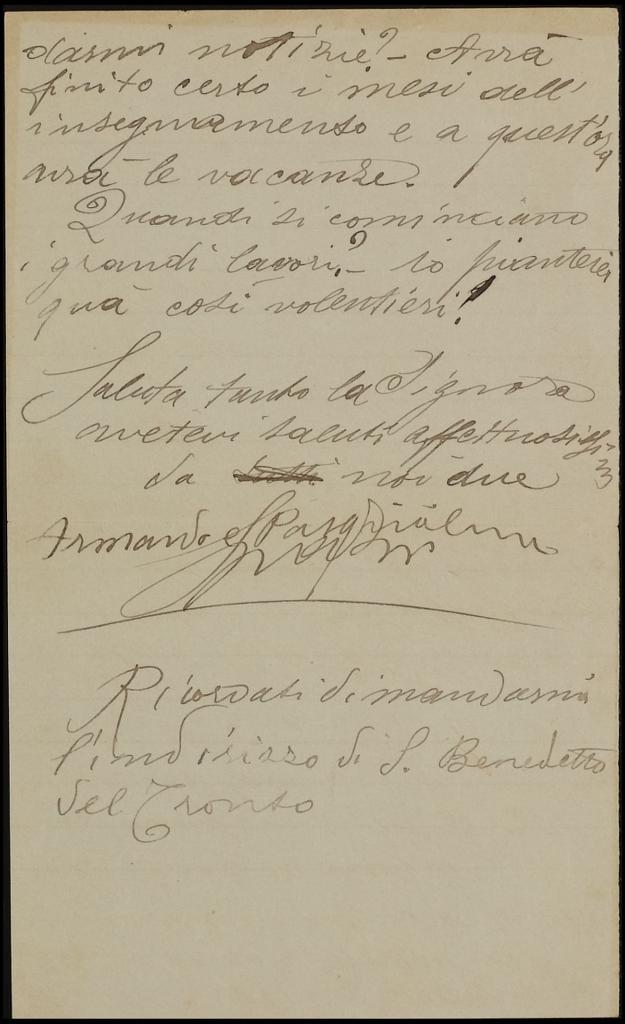 darmi notizie? - Avrà
finito certo i mesi dell'
insegnamento e a quest'ora
avrà le vacanze.
Quando si cominciano
i grandi lavori? - io pianterei
quà così volentieri!
Saluta tanto la Signora
avetevi saluti affettuosissi
mi
da tutti noi due
Armando e
Ricordati di mandarmi
l'indirizzo di S. Benedetto
del Tronto